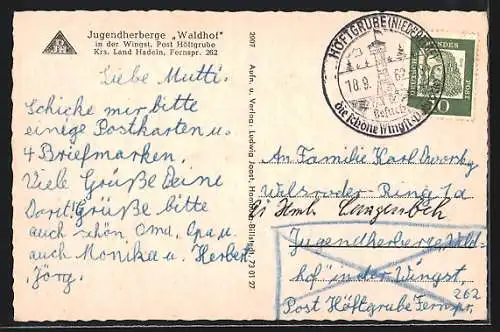 Jugendherberge „Waldhof"
in der Wingst, Post Höftgrube
Krs. Land Hadeln, Fernspr. 262
Liebe Mutti.
Schicke mir bitte
einige Postkarten u.
4 Briefmarken.
Viele Grüße Deine
Dorit! Grüße bitte
auch schön Oma, Opa u.
auch Monika u. Herbert
, Jörg.
2007 Aufn. u. Verlag: Ludwig Joost,
73 01 27
HÖFTGRUBE
18.9. 62
die schöne Wingst
BUNDES
POST
DEUTSCHE
10
An Familie Karl
Walsroder Ring 1a
Hmb. Langenbek
Jugendherberge „Wald-
hof" in der Wingst,
Post Höftgrube Fernspr.
262